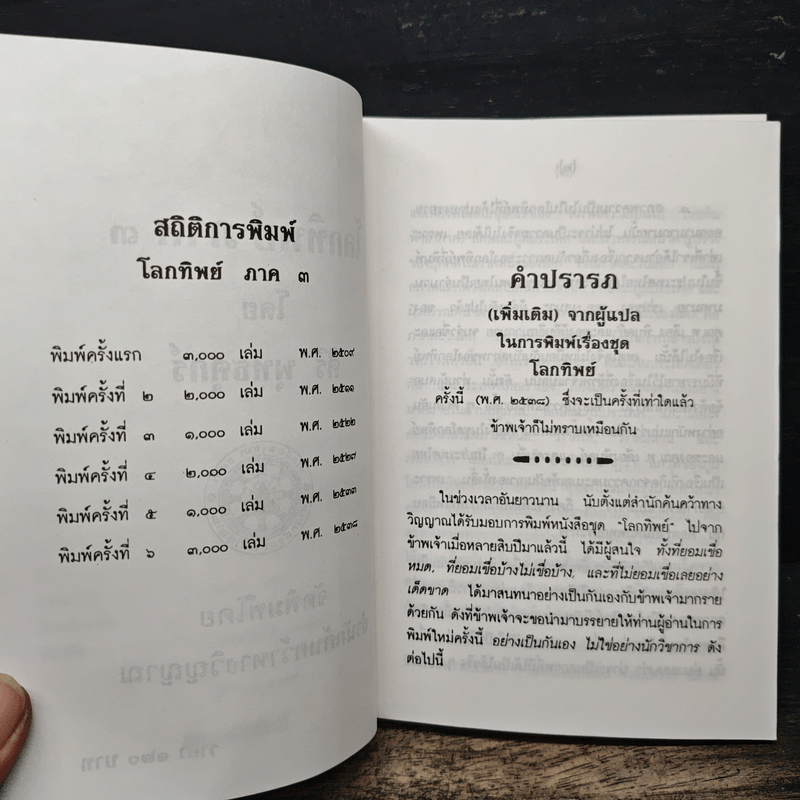 สถิติการพิมพ์
โลกทิพย์ ภาค ๓
พิมพ์ครั้งแรก ๓,๐๐๐ เล่ม พ.ศ. ๒๕๐๙
พิมพ์ครั้งที่ ๒ ๒,๐๐๐ เล่ม พ.ศ. ๒๕๑๑
พิมพ์ครั้งที่ ๓ ๑,๐๐๐ เล่ม พ.ศ. ๒๕๒๒
พิมพ์ครั้งที่ ๔ ๒,๐๐๐ เล่ม พ.ศ. ๒๕๒๗
พิมพ์ครั้งที่ ๕ ๑,๐๐๐ เล่ม พ.ศ. ๒๕๓๓
พิมพ์ครั้งที่ ๖ ๓,๐๐๐ เล่ม พ.ศ. ๒๕๓๘
คำปรารภ
(เพิ่มเติม) จากผู้แปล
ในการพิมพ์เรื่องชุด
โลกทิพย์
ครั้งนี้ (พ.ศ. ๒๕๓๘) ซึ่งจะเป็นครั้งที่เท่าใดแล้ว
ข้าพเจ้าก็ไม่ทราบเหมือนกัน
ในช่วงเวลาอันยาวนาน นับตั้งแต่สำนักค้นคว้าทาง
วิญญาณได้รับมอบการพิมพ์หนังสือชุด "โลกทิพย์" ไปจาก
ข้าพเจ้าเมื่อหลายสิบปีมาแล้วนี้ ได้มีผู้สนใจ ทั้งที่ยอมเชื่อ
หมด, ที่ยอมเชื่อบ้างไม่เชื่อบ้าง, และที่ไม่ยอมเชื่อเลยอย่าง
เด็ดขาด ได้มาสนทนาอย่างเป็นกันเองกับข้าพเจ้ามากราย
ด้วยกัน ดังที่ข้าพเจ้าจะขอนำมาบรรยายให้ท่านผู้อ่านในการ
พิมพ์ใหม่ครั้งนี้ อย่างเป็นกันเอง ไม่ใช่อย่างนักวิชาการ ดัง
ต่อไปนี้